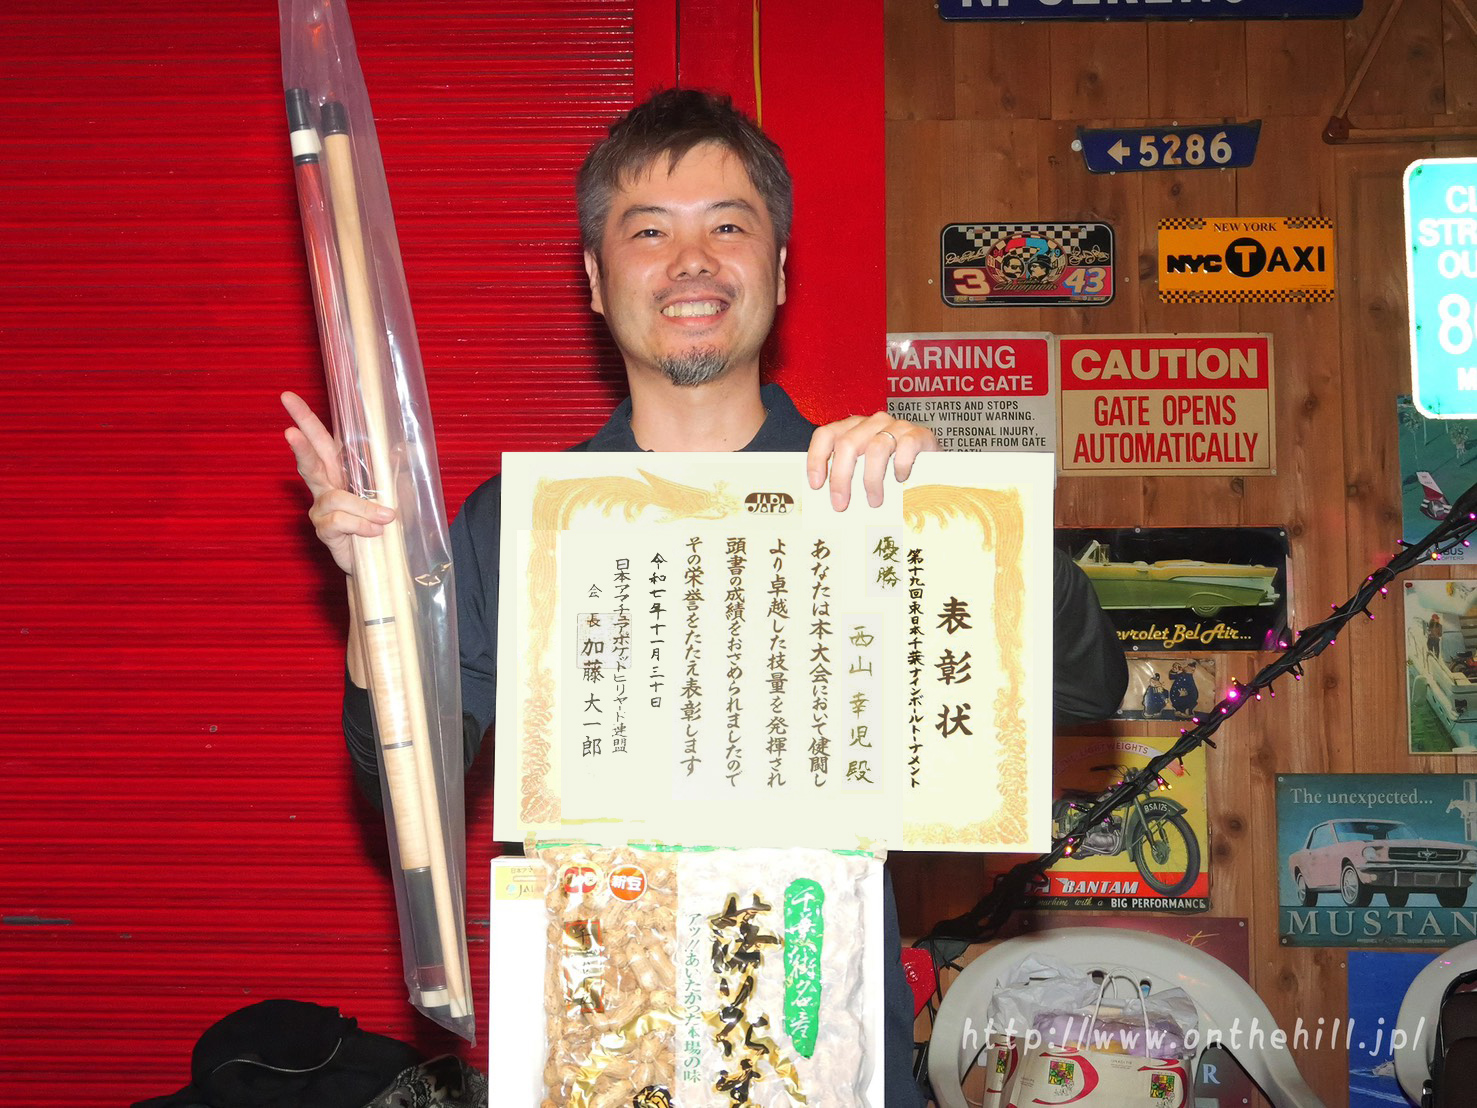 ← 5286
3
43
Champions
NEW YORK
NYC TAXI
WARNING
TOMATIC GATE
S GATE STARTS AND STOPS
ATICALLY WITHOUT WARNING.
US PERSONAL INJURY,
EET CLEAR FROM GATE
CAUTION
GATE OPENS
AUTOMATICALLY
JAPA
表彰状
第十九回東日本千葉ナインボールトーナメント
優勝
西山幸児殿
あなたは本大会において健闘し
より卓越した技量を発揮され
頭書の成績をおさめられましたので
その栄誉をたたえ表彰します
令和七年十一月三十日
日本アマチュアポケットビリヤード連盟
会長 加藤大一郎
evrolet Bel Air...
GHTWEIGHTS
BSA 175
BANTAM
machine with a BIG PERFORMANCE
The unexpected...
MUSTAN
新豆
千葉県名産
落り花生
アッ!!あいたかった本場の味
http://www.onthehill.jp/